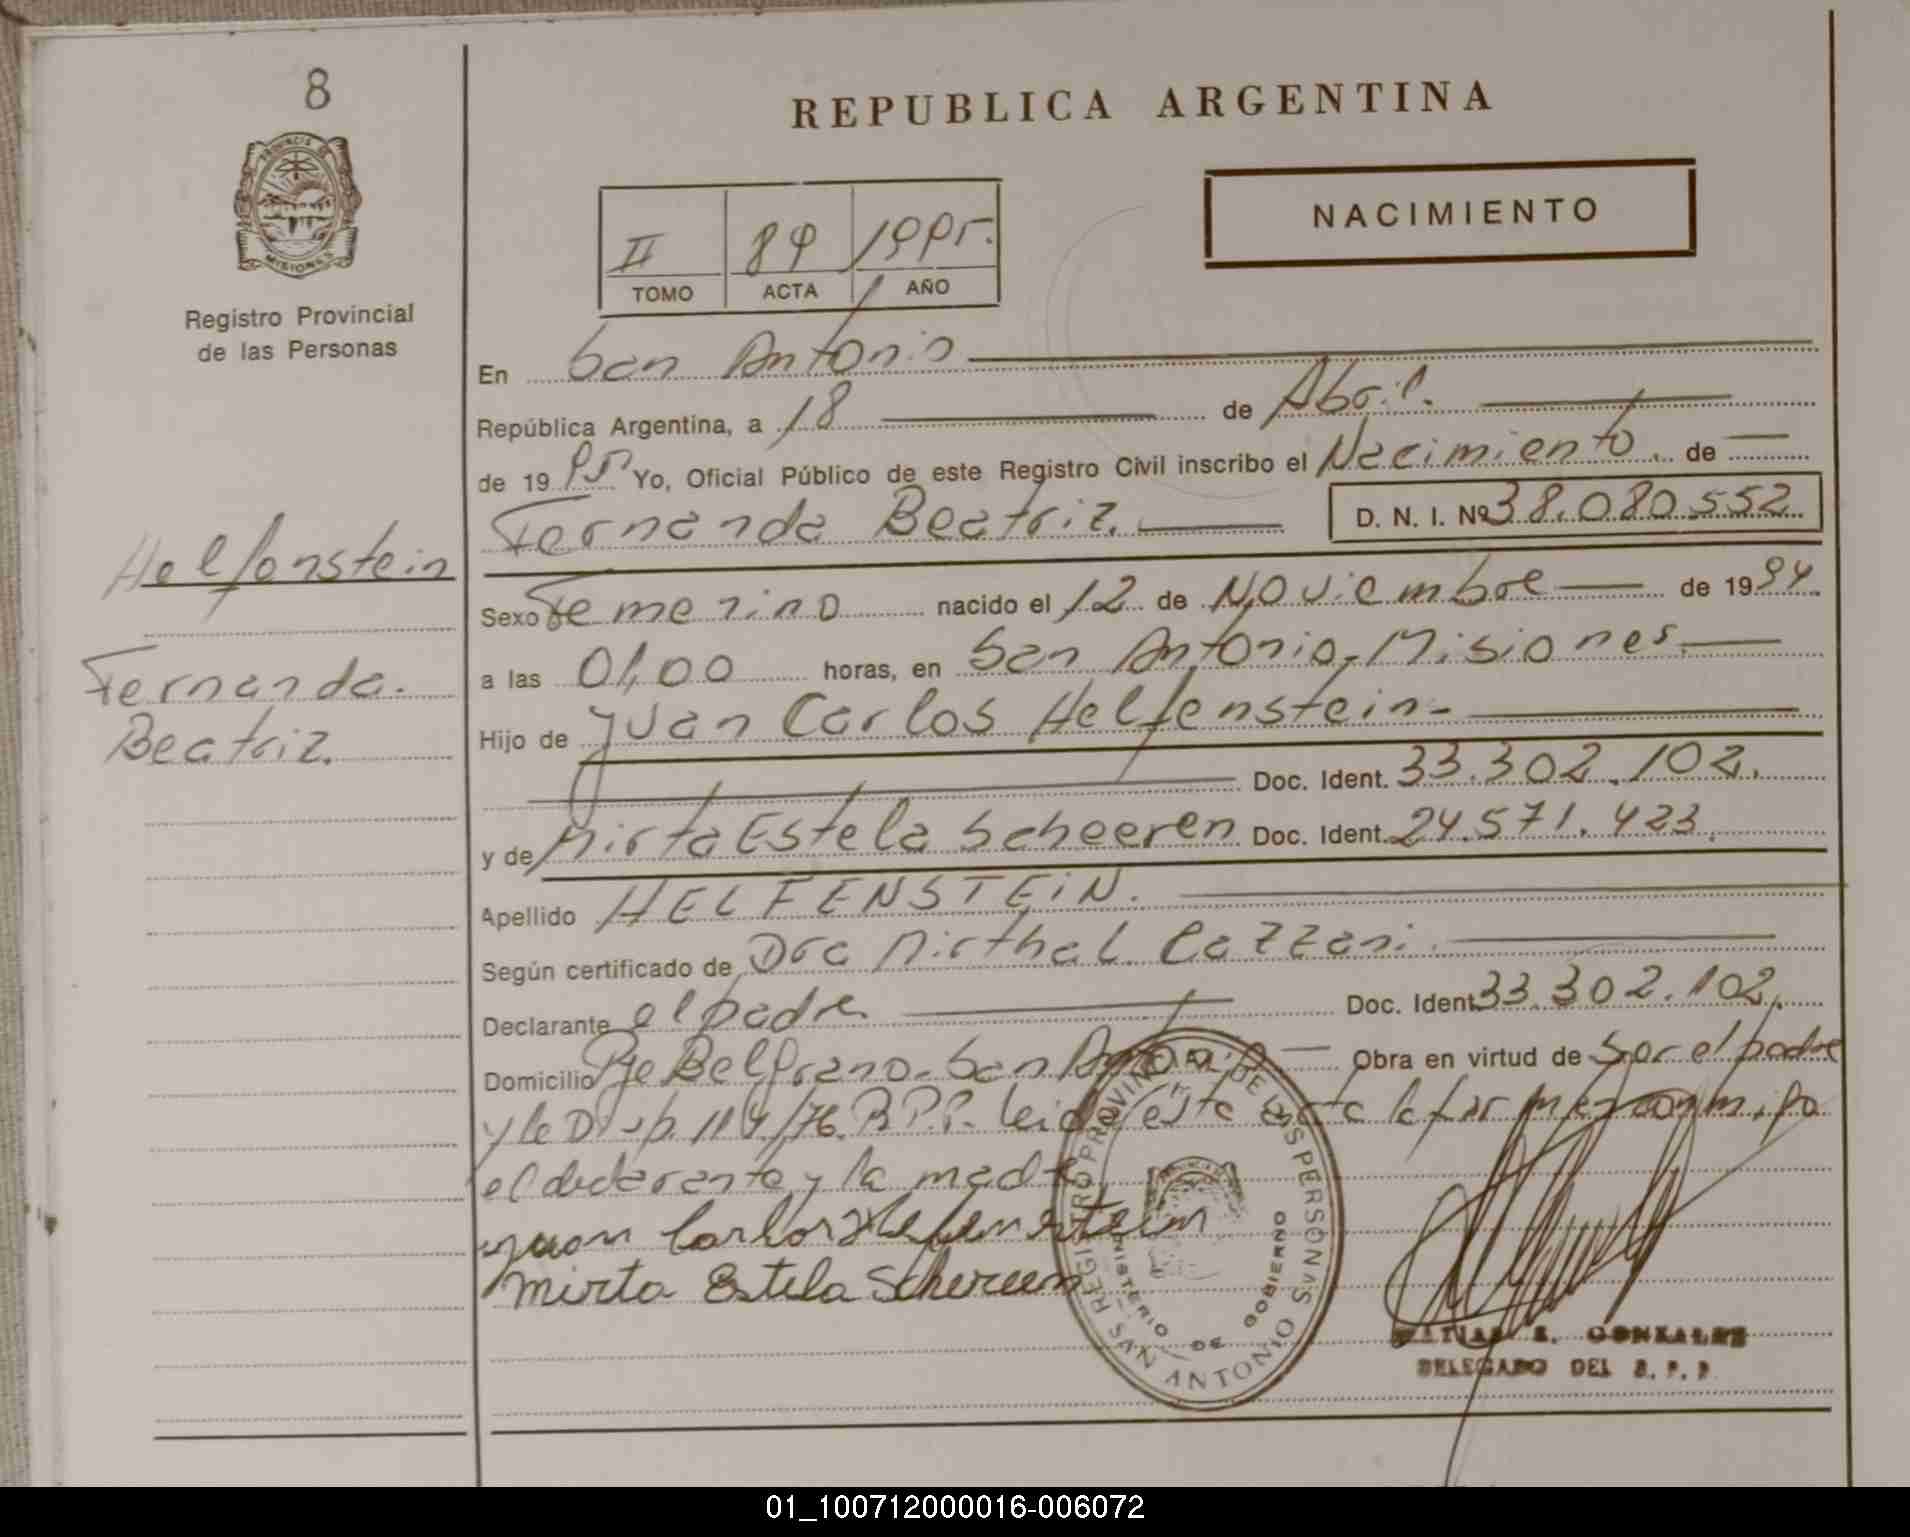 8
PROVINCIA DE
MISIONES
Registro Provincial
de las Personas
Helfenstein
Fernanda.
Beatriz.
REPUBLICA ARGENTINA
NACIMIENTO
II 89 1995.
TOMO ACTA AÑO
En San Antonio
República Argentina, a 18 de Abril.
de 1995 Yo, Oficial Público de este Registro Civil inscribo el Nacimiento de
Fernanda Beatriz. D. N. I. Nº 38.080.552
Sexo Femenino nacido el 12 de Noviembre de 1994.
a las 01,00 horas, en San Antonio, Misiones.
Hijo de Juan Carlos Helfenstein
Doc. Ident. 33.302.102.
y de Mirta Estela Scheeren Doc. Ident. 24.571.423.
Apellido HELFENSTEIN.
Según certificado de Dra Mirtha L. Cazzani.
Declarante el padre Doc. Ident. 33.302.102.
Domicilio Pje Belgrano. San Antonio Obra en virtud de Ser el padre
y la Disp. 114/76. R.P.P. leida esta acta la firmez conmigo
el declarante y la madre
Juan Carlos Helfenstein
Mirta Estela Schereen
REGISTRO PROVINCIAL DE LAS PERSONAS
MINISTERIO DE GOBIERNO
SAN ANTONIO
MATIAS E. GONZALEZ
DELEGADO DEL R. P. P.
01_100712000016-006072